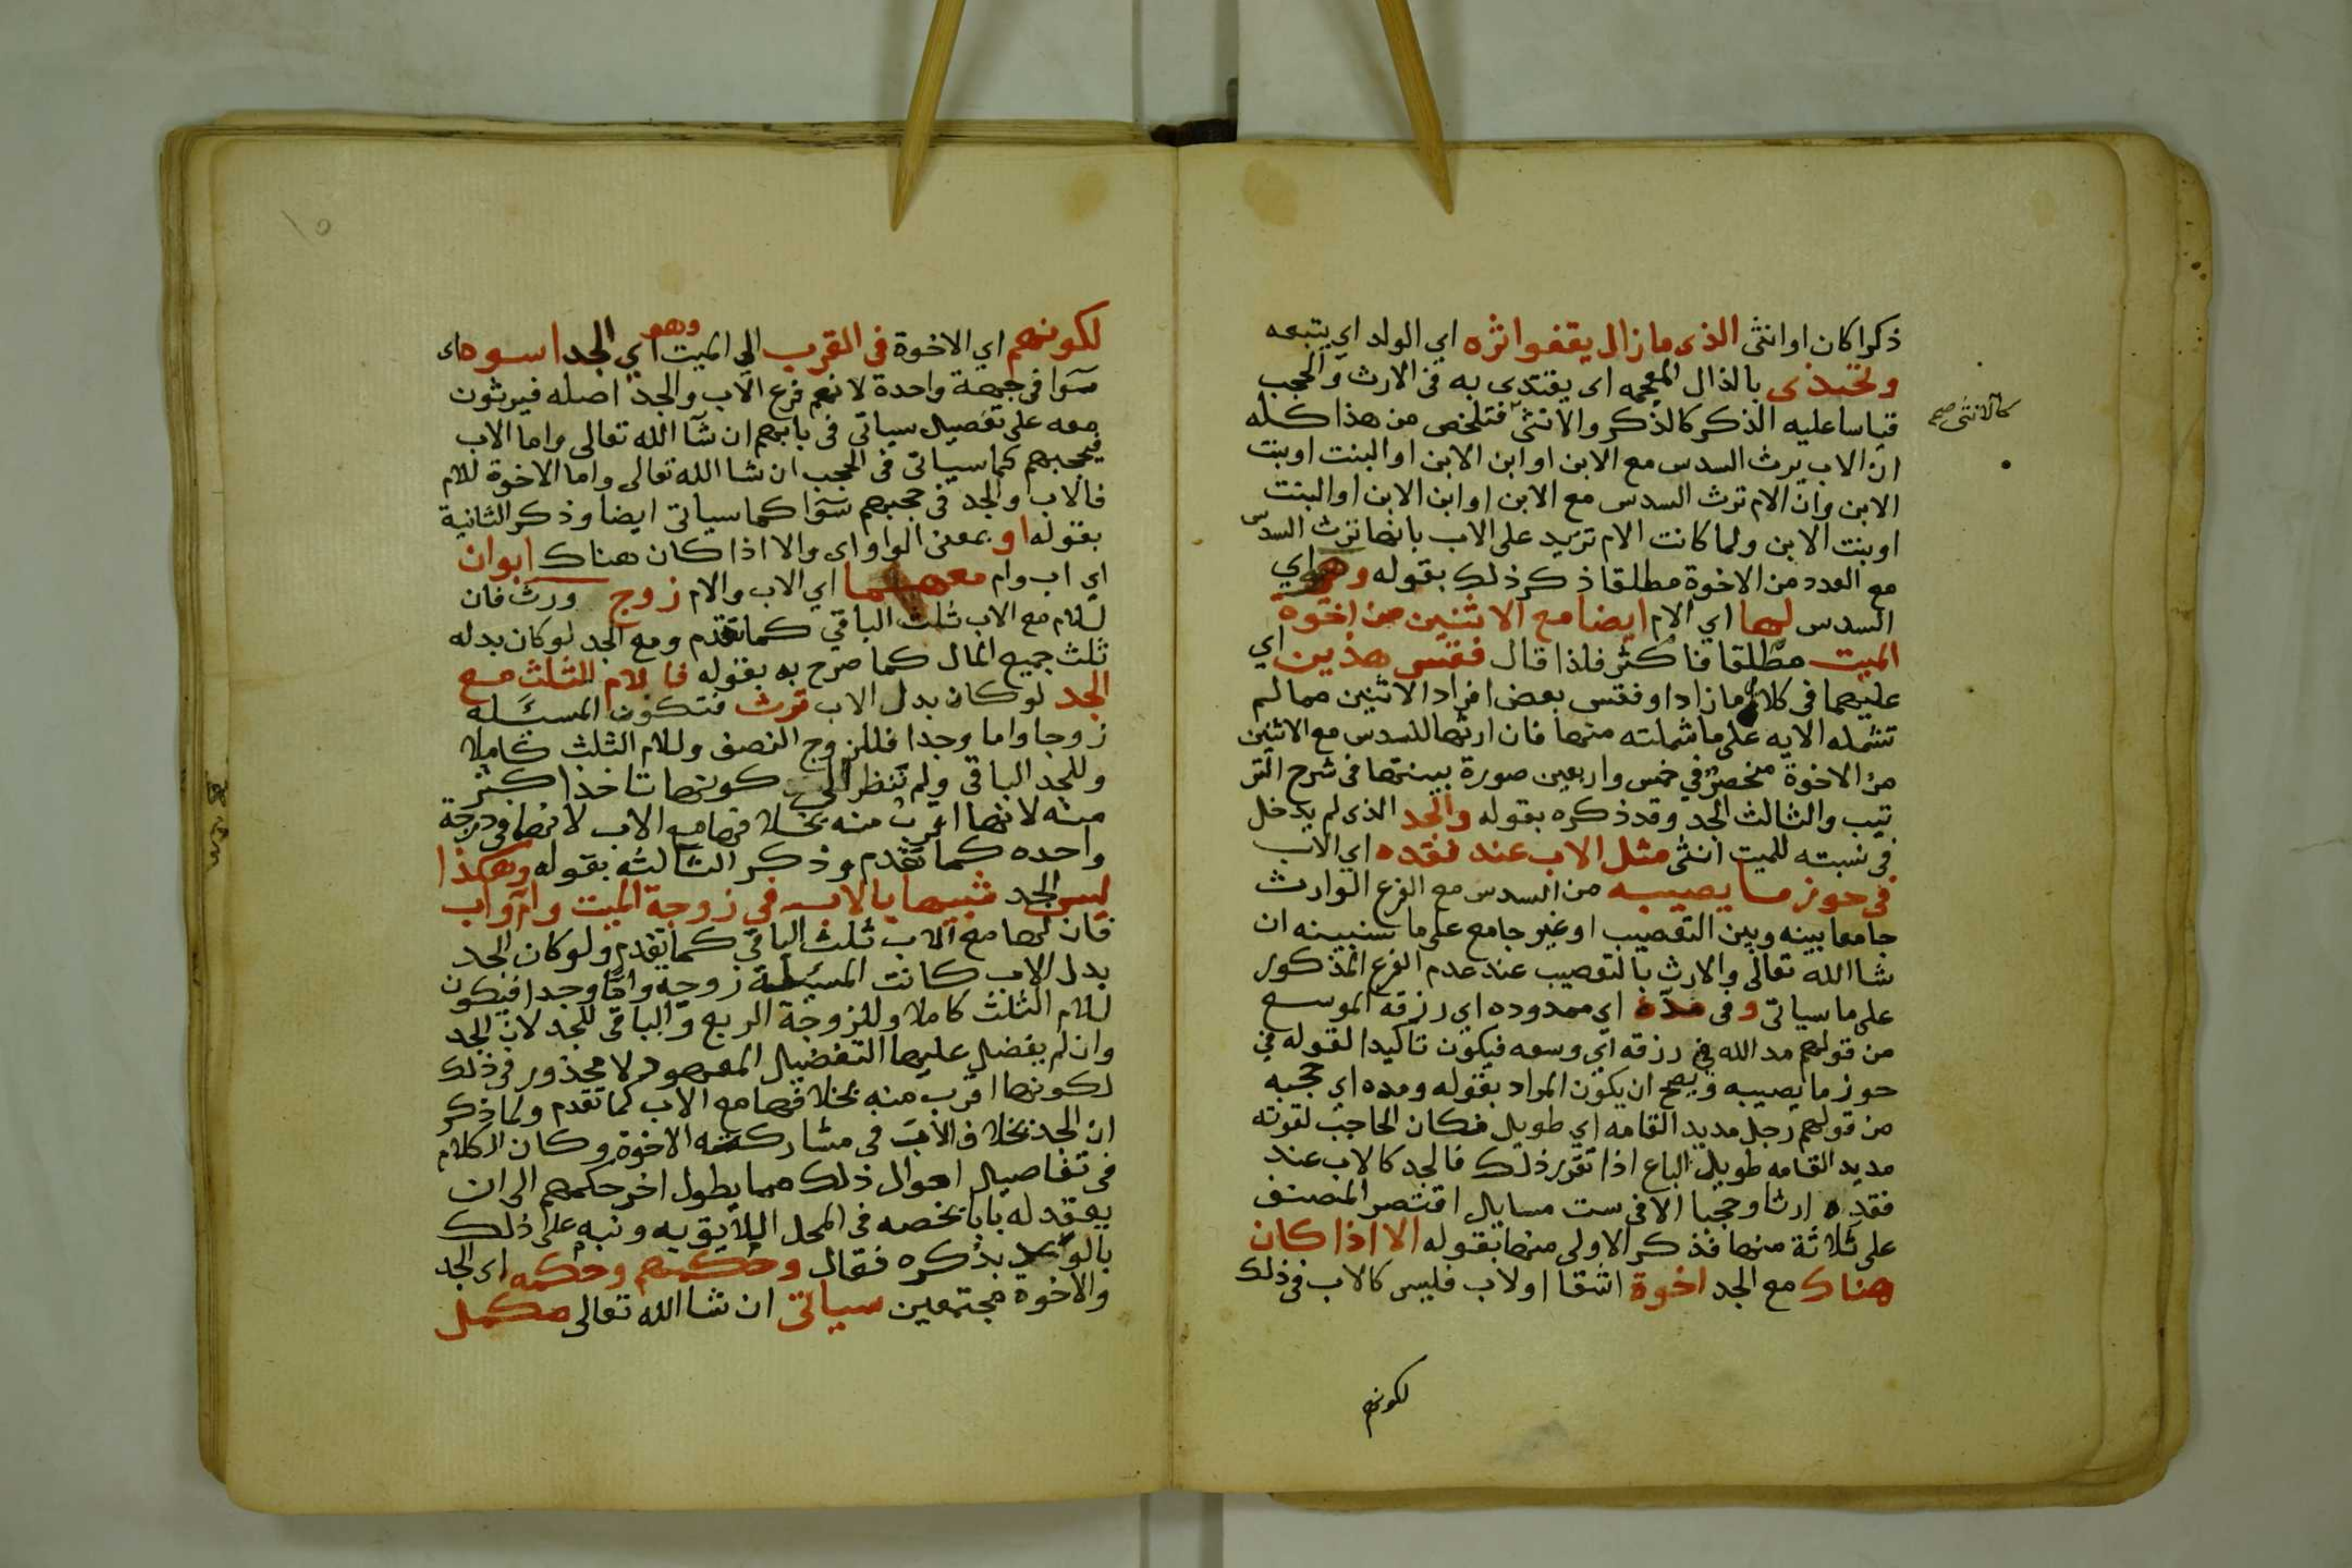 ذكرا كان او انثى الذى مازال يقفوا ثره اي الولد اي يتبعه
ويحتذى بالذال المعجمه اى يقتدى به فى الارث والحجب
قياسا عليه الذكر كالذكر والانثى فتلخص من هذا كله
كالانثى صح
ان الاب يرث السدس مع الابن او ابن الابن او البنت او بنت
الابن وان الام ترث السدس مع الابن او ابن الابن او البنت
او بنت الابن ولما كانت الام تزيد على الاب بانها ترث السدس
مع العدد من الاخوة مطلقا ذكر ذلك بقوله وهو اي
السدس لها اي الام ايضا مع الاثنين من اخوة
الميت مطلقا فاكثر فلذا قال فقس هذين اي
عليهما فى كلام مازاد او فقس بعض افراد الاثنين مما لم
تشمله الايه على ما شملته منها فان ارثها للسدس مع الاثنين
من الاخوة منحصر في خمس واربعين صورة بينتها فى شرح التر
تيب والثالث الجد وقد ذكره بقوله والجد الذى لم يدخل
فى نسبته للميت انثى مثل الاب عند فقده اي الاب
فى حوز ما يصيبه من السدس مع الفرع الوارث
جامعا بينه وبين التعصيب او غير جامع على ما سنبينه ان
شا الله تعالى والارث بالتعصيب عند عدم الفرع المذكور
على ما سياتى وفى مده اي ممدوده اي رزقه الموسع
من قولهم مد الله في رزقه اي وسعه فيكون تاكيدا لقوله في
حوز ما يصيبه ويصح ان يكون المراد بقوله ومده اي حجبه
من قولهم رجل مديد القامه اي طويل فكان الحاجب لقوته
مديد القامه طويل الباع اذا تقرر ذلك فالجد كالاب عند
فقده ارثا وحجبا الا فى ست مسايل اقتصر المصنف
على ثلاثة منها فذكر الاولى منها بقوله الا اذا كان
هناك مع الجد اخوة اشقا او لاب فليس كالاب فى ذلك
لكونهم
لكونهم اي الاخوة فى القرب الي الميت وهو اي الجد اسوه اى
سوا فى جهة واحدة لانهم فرع الاب والجد اصله فيرثون
معه على تفصيل سياتى فى بابهم ان شا الله تعالى واما الاب
فيحجبهم كما سياتى فى الحجب ان شا الله تعالى واما الاخوة للام
فالاب والجد فى حجبهم سوا كما سياتى ايضا وذكر الثانية
بقوله او بمعنى الواو اى والا اذا كان هناك ابوان
اي اب وام معهما اي الاب والام زوج ورث فان
للام مع الاب ثلث الباقي كما تقدم ومع الجد لو كان بدله
ثلث جميع المال كما صرح به بقوله فالام للثلث مع
الجد لو كان بدل الاب ترث فتكون المسئله
زوجا واما وجدا فللزوج النصف وللام الثلث كاملا
وللجد الباقي ولم تنظر الي كونها تاخذ اكثر
منه لانها اقرب منه بخلافها مع الاب لانها فى درجة
واحده كما تقدم وذكر الثالثه بقوله وهكذا
ليس الجد شبيها بالاب في زوجة الميت وام واب
فان لها مع الاب ثلث الباقي كما تقدم ولو كان الجد
بدل الاب كانت المسئلة زوجه واما وجدا فيكون
للام الثلث كاملا وللزوجة الربع والباقى للجد لان الجد
وان لم يفضل عليها التفضيل المعهود لا محذور فى ذلك
لكونها اقرب منه بخلافها مع الاب كما تقدم ولما ذكر
ان الجد بخلاف الاب فى مشاركته الاخوة وكان الكلام
فى تفاصيل احوال ذلك مما يطول اخر حكمهم الى ان
يعقد له بابا يخصه فى المحل اللايق به ونبه على ذلك
بالوعد بذكره فقال وحكمهم وحكمه اى الجد
والاخوة مجتمعين سياتى ان شا الله تعالى مكمل